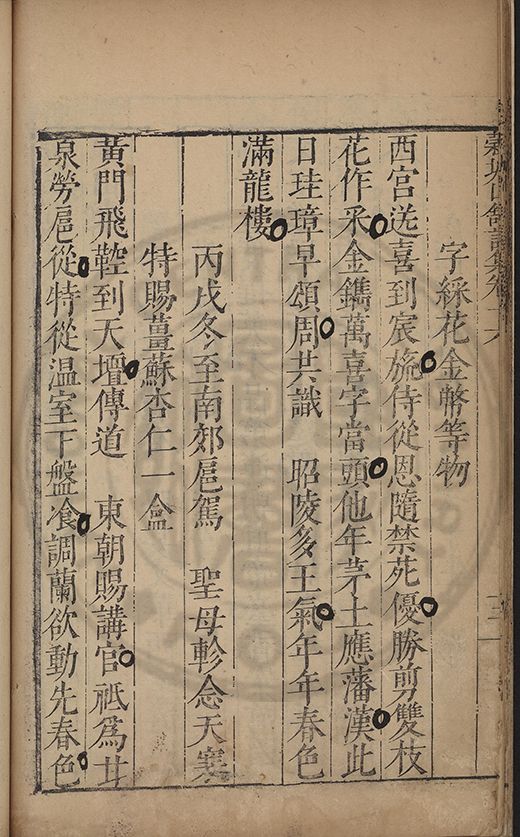 字綵花金幣等物
西宮送喜到宸旒侍從恩隨禁苑優勝剪雙枝
花作釆金鐫萬喜字當頭他年茅土應藩漢此
日珪璋早頌周共識　昭陵多王氣年年春色
滿龍樓
丙戌冬至南郊扈駕　聖母軫念天寒
特賜薑蘇杏仁一盒
黃門飛鞚到天壇傳道　東朝賜講官祗爲甘
泉勞扈從特從温室下盤飡調蘭欲動先春色